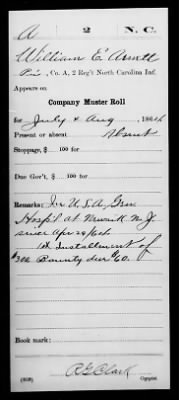 A 2 N.C.
William E Arnett
Pvt, Co. A, 2 Reg't North Carolina Inf.
Appears on
Company Muster Roll
for July & Aug, 1864
Present or absent Absent
Stoppage, $ 100 for
Due Gov't, $ 100 for
Remarks: In U.S.A. Gen
Hosp'l at Newark N.J.
since Apr 28/64
1st Installment of
$300 Bounty due $60.
Book mark:
R G Clark
(858) Copyist